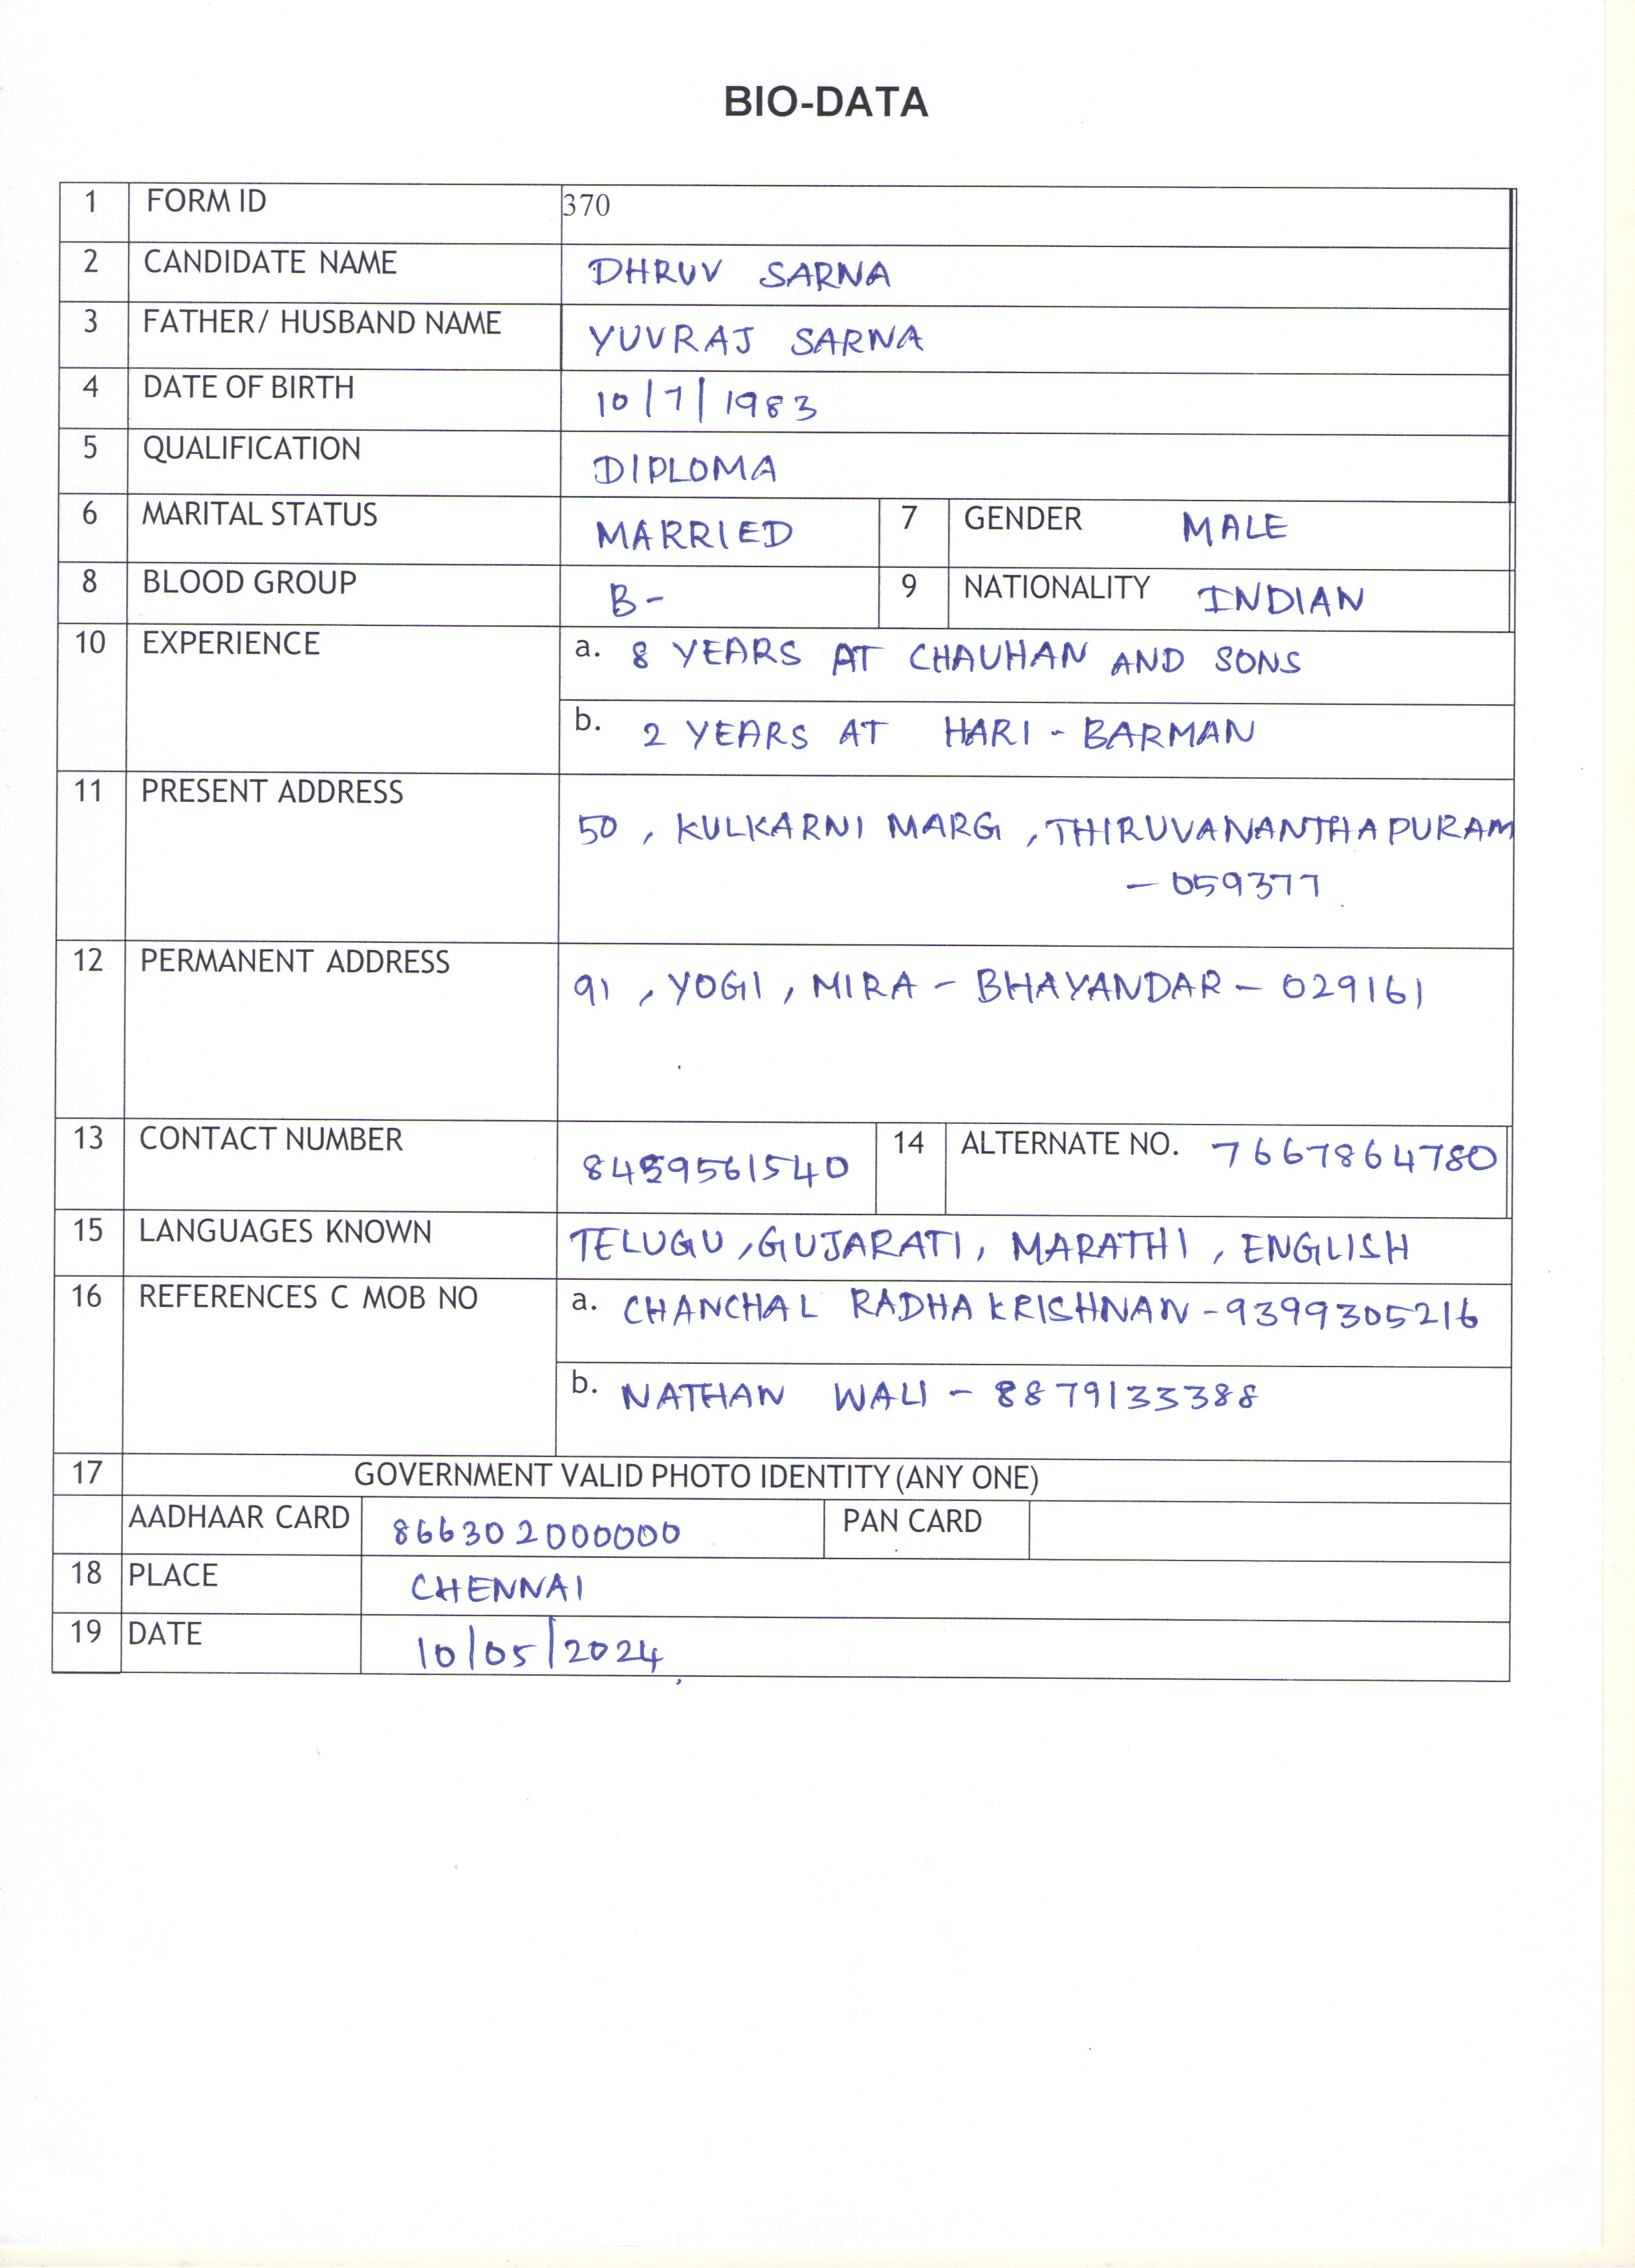 BIO-DATA
1 FORM ID 370
2 CANDIDATE NAME DHRUV SARNA
3 FATHER/ HUSBAND NAME YUVRAJ SARNA
4 DATE OF BIRTH 10/7/1983
5 QUALIFICATION DIPLOMA
6 MARITAL STATUS MARRIED 7 GENDER MALE
8 BLOOD GROUP B- 9 NATIONALITY INDIAN
10 EXPERIENCE a. 8 YEARS AT CHAUHAN AND SONS
b. 2 YEARS AT HARI - BARMAN
11 PRESENT ADDRESS
50, KULKARNI MARG, THIRUVANANTHAPURAM
- 059377
12 PERMANENT ADDRESS 91, YOGI, MIRA - BHAYANDAR - 029161
13 CONTACT NUMBER 8459561540 14 ALTERNATE NO. 7667864780
15 LANGUAGES KNOWN TELUGU, GUJARATI, MARATHI, ENGLISH
16 REFERENCES C MOB NO a. CHANCHAL RADHAKRISHNAN - 9399305216
b. NATHAN WALI - 8879133388
17 GOVERNMENT VALID PHOTO IDENTITY (ANY ONE)
AADHAAR CARD 866302000000 PAN CARD
18 PLACE CHENNAI
19 DATE 10/05/2024